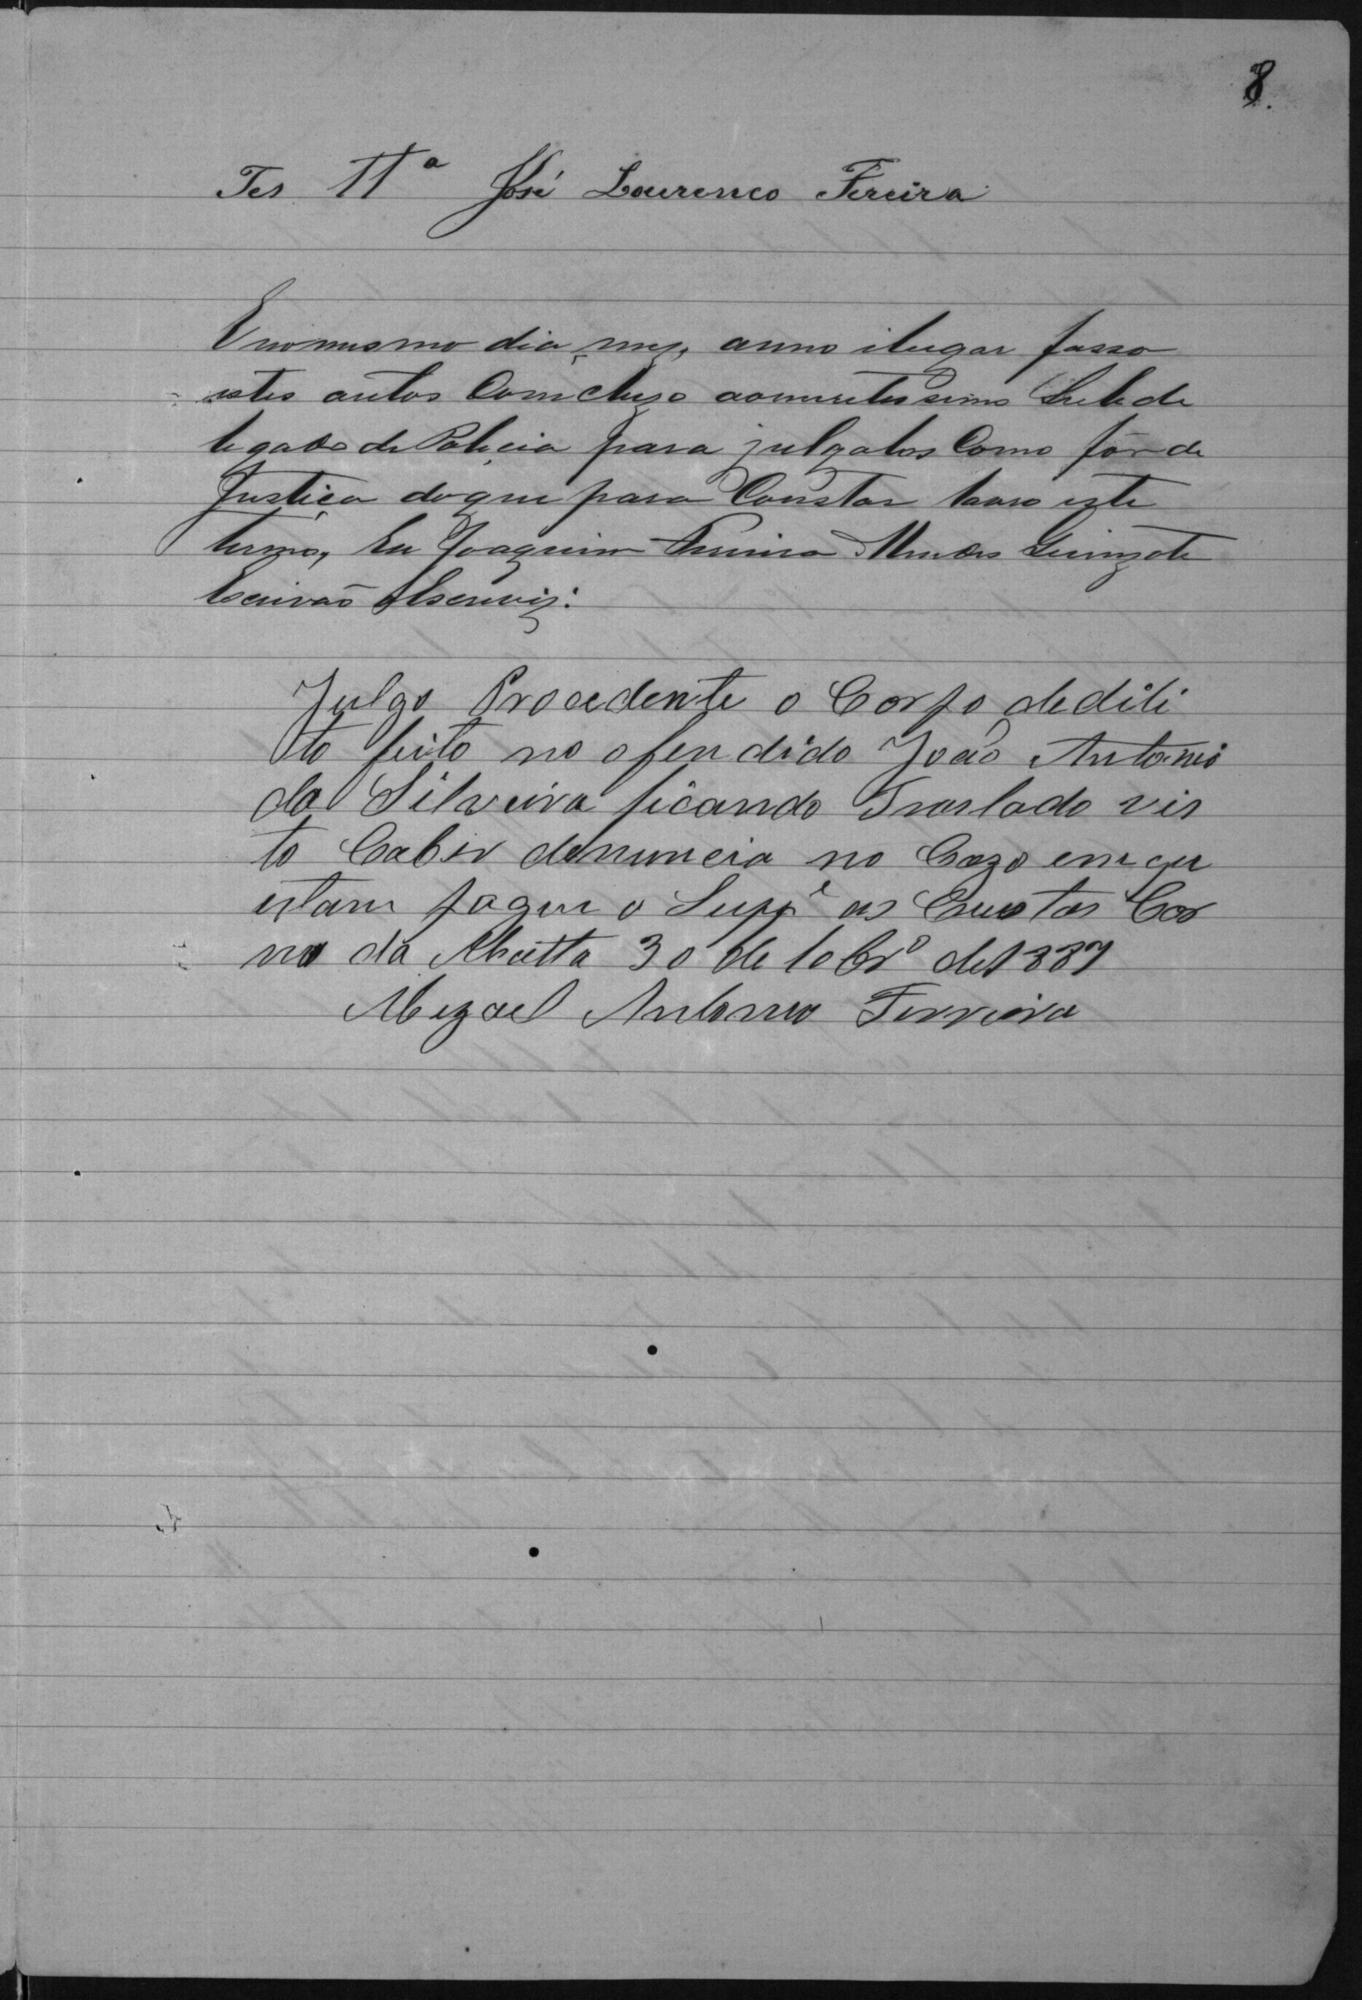 8.
Tes 11ª José Lourenco Fereira
E no mesmo dia mez, anno ilugar fasso
estes autos Comcluzo ao Subde
legado de Policia para julgalos Como fôr de
Justiça doque para Constar este
termo, Eu Joaquim Mendes
Escrivão Escrevi:
Julgo Procedente o Corpo dedili
to feito no ofendido João Antonio
da Silveira ficando Traslado vis
to Caber denuncia no Cazo em qu
estam pague o Supp.e as Custas Cor
no da Matta 30 de 10br.o de 1887
Mizael Antonio Ferreira